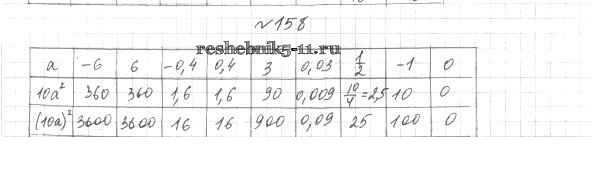 №158
reshebnik5-11.ru
a -6 6 -0,4 0,4 3 0,03 1/2 -1 0
10a² 360 360 1,6 1,6 90 0,009 10/4=2,5 10 0
(10a)² 3600 3600 16 16 900 0,09 25 100 0